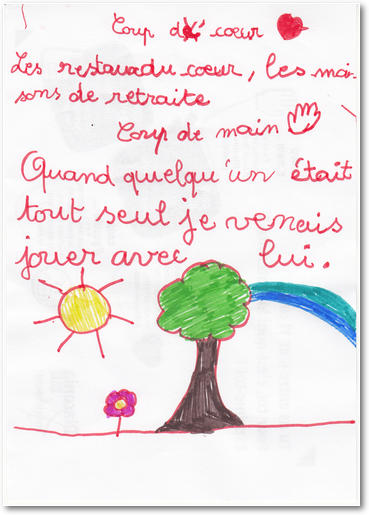 Coup de coeur
Les restauradu coeur, les mai-
sons de retraite
Coup de main
Quand quelqu'un était
tout seul je venais
jouer avec lui.